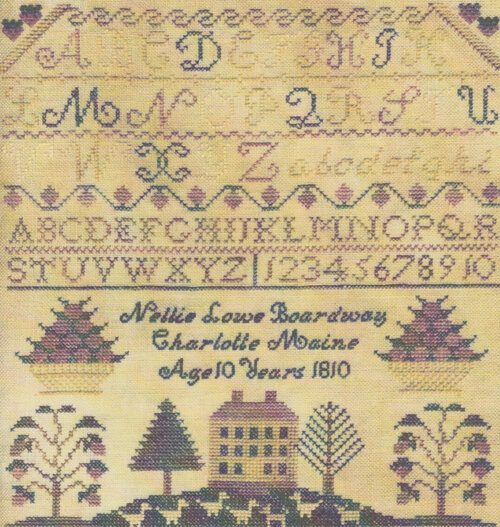 A B C D E F G H I K
L M N O P Q R S T U
V W X Y Z a b c d e f g h i
ABCDEFGHIJKLMNOPQR
STUVWXYZ 12345678910
Nellie Lowe Boardway
Charlotte Maine
Age 10 Years 1810